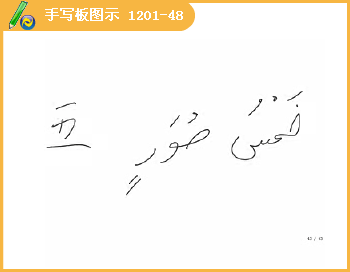 手写板图示 1201-48
五 خَمْسُ صُوَرٍ